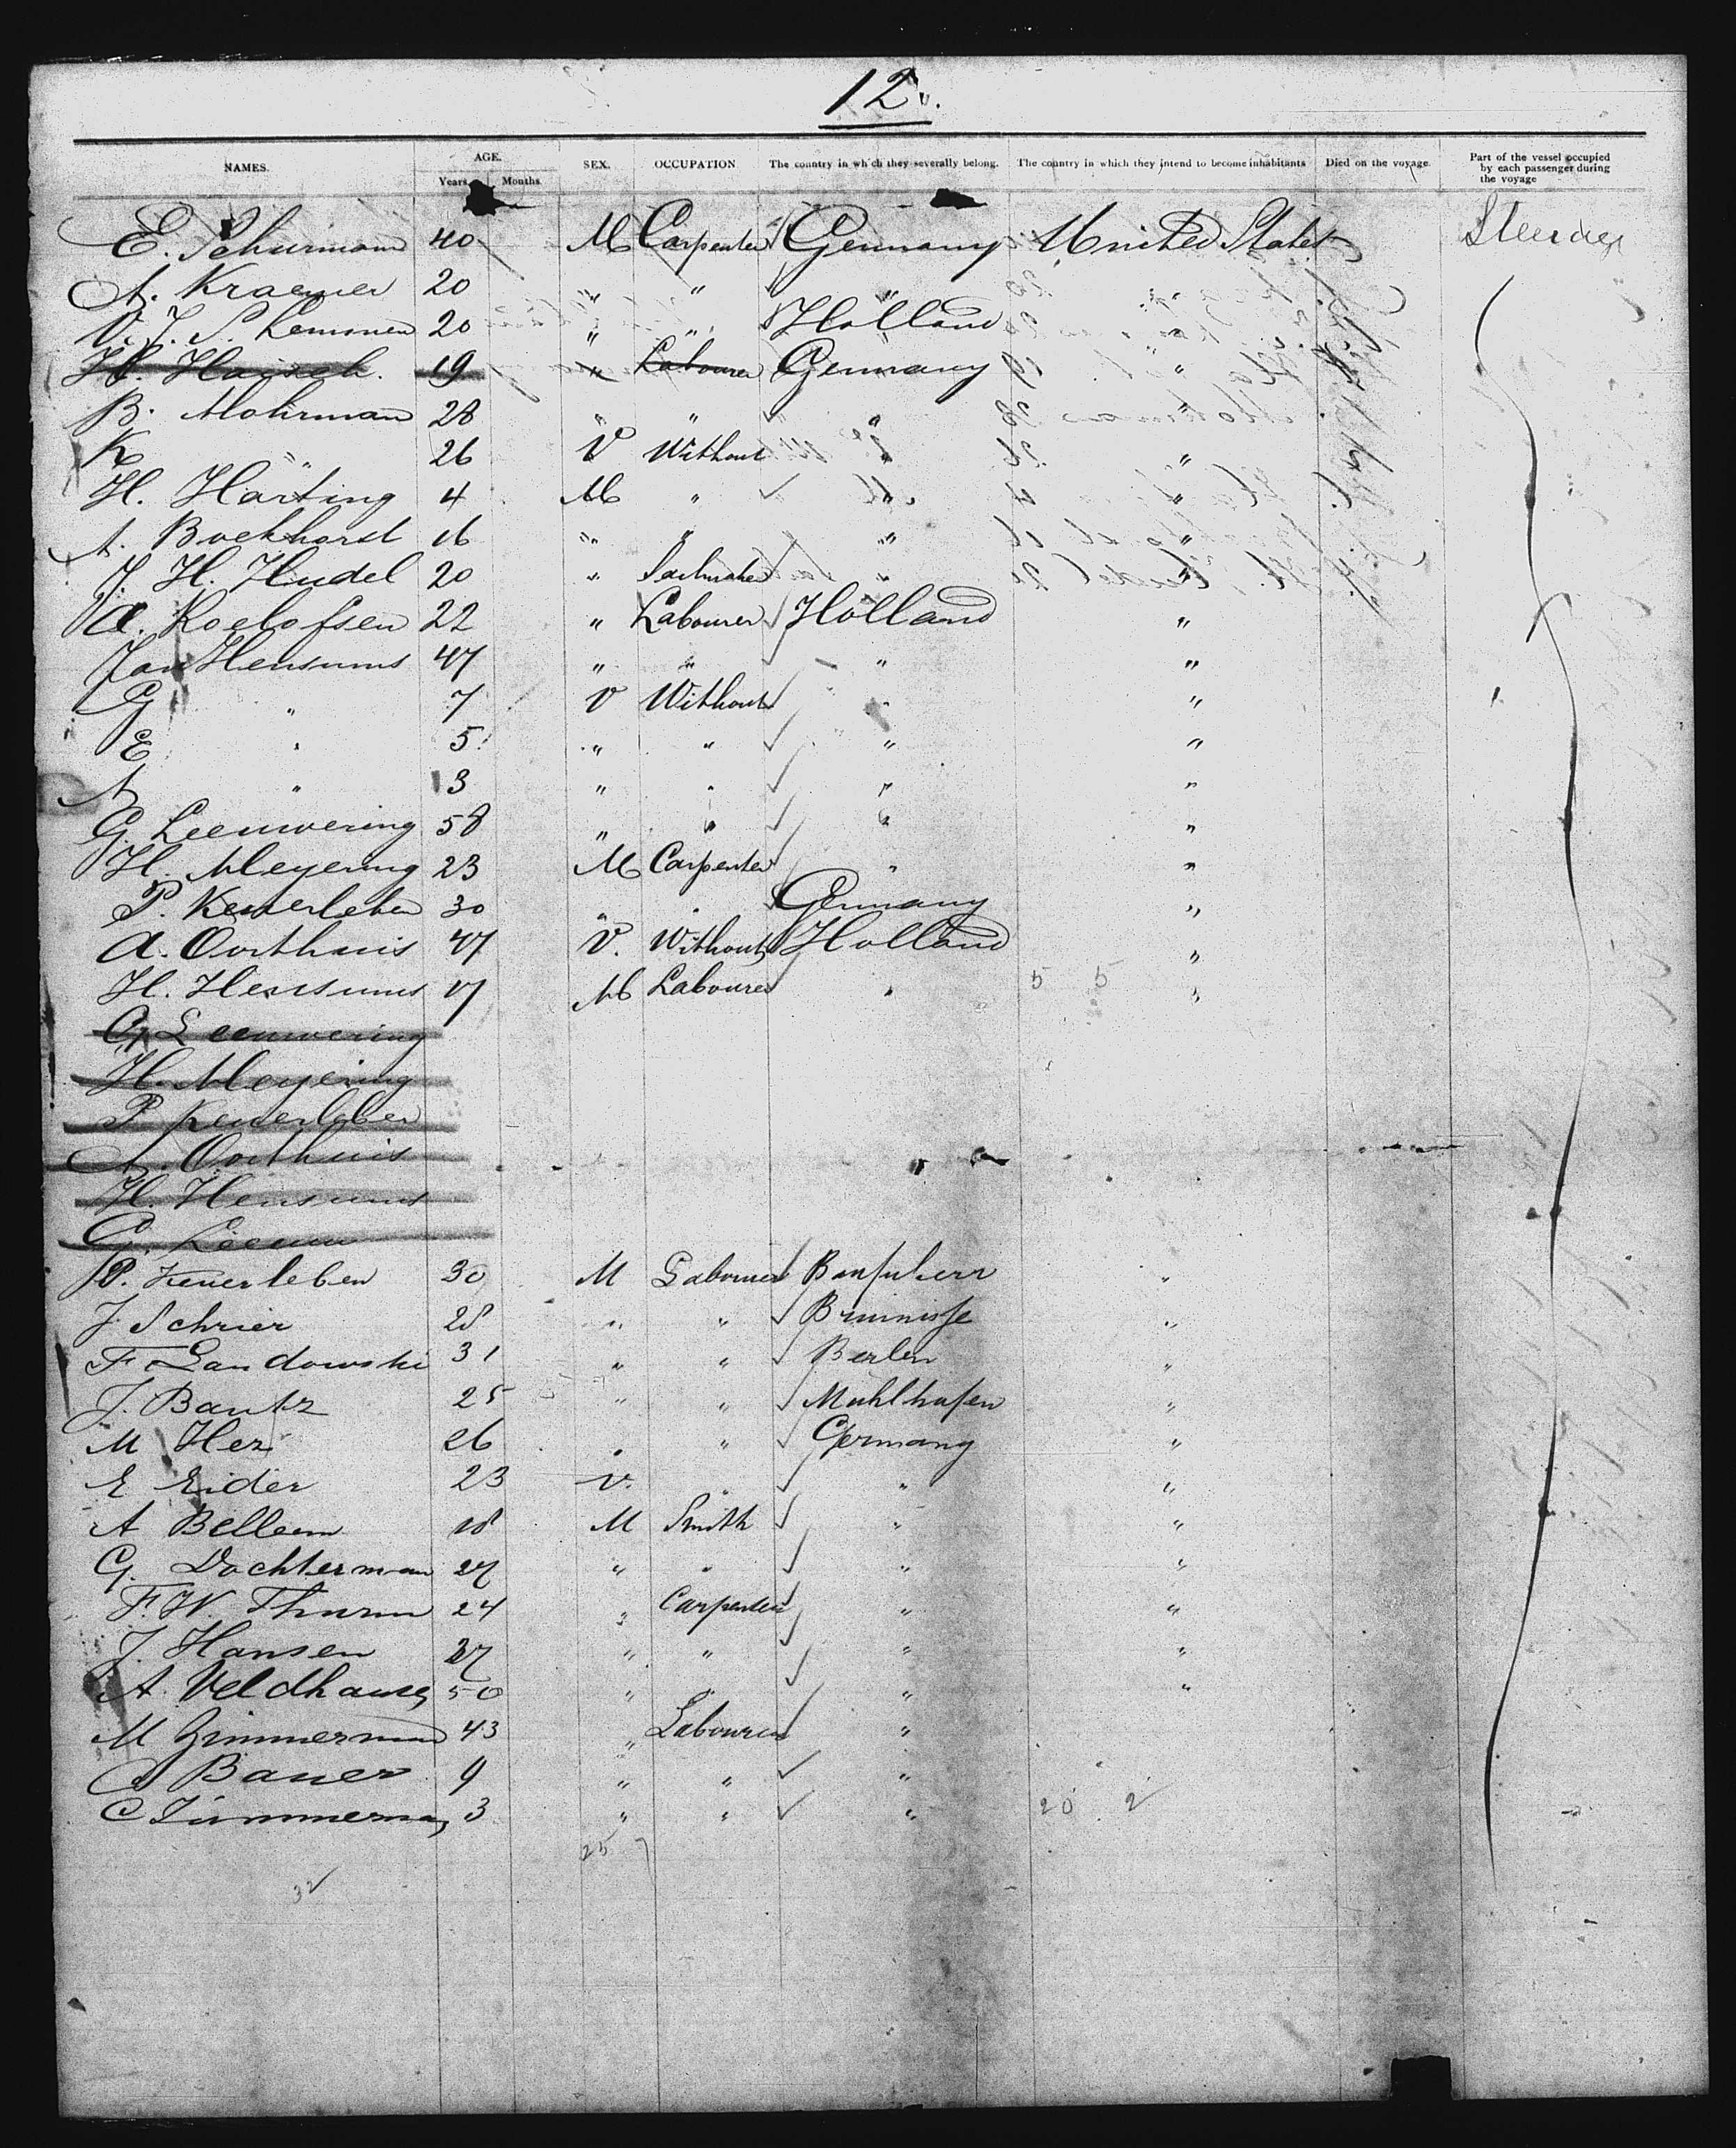 12.
NAMES. AGE. SEX. OCCUPATION The country in which they severally belong. The country in which they intend to become inhabitants Died on the voyage. Part of the vessel occupied by each passenger during the voyage
Years. Months.
E. Schurmann 40 M Carpenter Germany United States Steerage
A. Kraemer 20 " " " "
V. J. S. Lemmen 20 " " Holland "
H. Haisch. 19 " Labourer Germany "
B. Mohrman 28 " " " "
K " 26 V Without " "
H. Harting 4 M " " "
A. Bockhorst 16 " " " "
J. H. Hudel 20 " Sailmaker " "
A. Roelofsen 22 " Labourer Holland "
Jan Hensums 47 " " " "
G " 7 V Without " "
E " 5 " " " "
A " 3 " " " "
G. Leeuwering 58 " " " "
H. Meyering 23 M Carpenter " "
P. Keuerleben 30 " " Germany "
A. Oorthuis 47 V. Without Holland "
H. Hensums 17 M Labourer " 5 5 "
G. Leeuwering
H. Meyering
P. Keuerleben
A. Oorthuis
H. Hensums
G. Leeuw
P. Keuerleben 30 M Labourer "
J. Schrier 28 " " Bruinisse "
F. Landowski 31 " " Berlin "
J. Bantz 25 " " Muhlhafen "
M Herz 26 " " Germany "
E Eider 23 V. " " "
A Belleem 18 M Smith " "
G. Dochterman 27 " " " "
F. W. Thurm 24 " Carpenter " "
J. Hansen 27 " " " "
A. Veldhause 50 " " " "
M Zimmerman 43 " Labourer "
Bauer 9 " " "
C Zimmerman 3 " " " 20 2
25 7
32